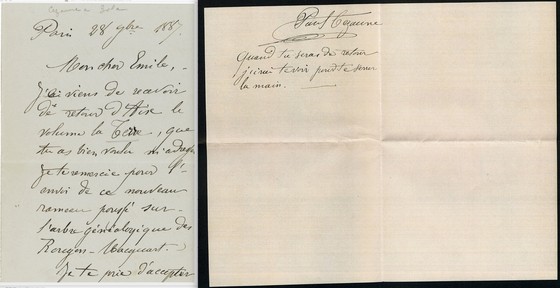 Cezanne a Zola
Paris 28 9bre 1887.
Mon cher Emile, -
Je viens de recevoir
de retour d'Aix le
volume la Terre, que
tu as bien voulu m'adresser
Je te remercie pour l'-
envoi de ce nouveau
rameau poussé sur-
l'arbre généalogique des
Rougon-Macquart.
Je te prie d'accepter
Paul Cezanne
Quand tu seras de retour
j'irai te voir pour te serrer
la main.